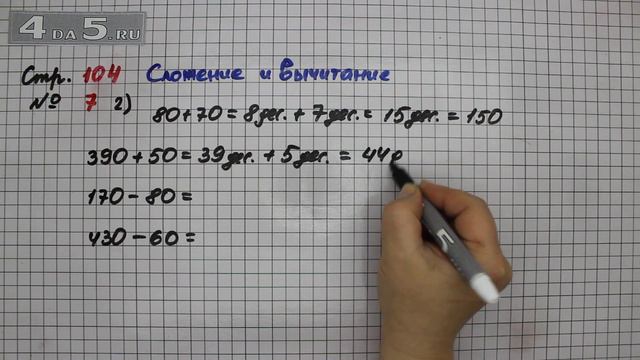 4 DA 5.RU
Стр. 104 Сложение и вычитание
№ 7 2) 80+70=8 дес. + 7 дес. = 15 дес. = 150
390+50=39 дес. + 5 дес. = 440
170-80=
430-60=